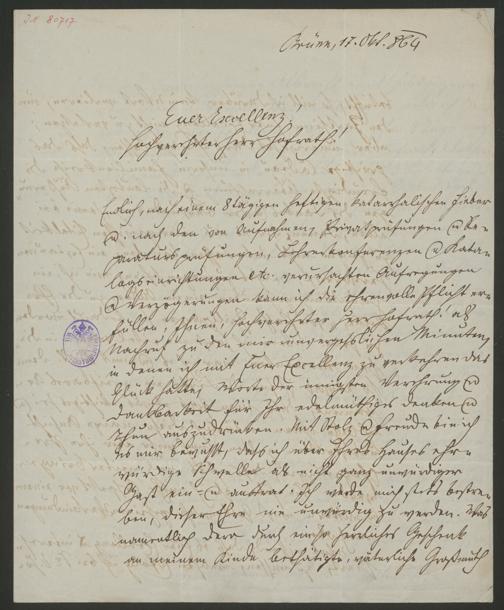 IN 80717
Brünn, 17. Okt. 864
Euer Excellenz!
Hochverehrter Herr Hofrath!
Endlich, nach einem 8tägigen heftigen, katarrhalischen Fieber
u. nach den von Aufnahmen, Privatprüfungen u Re-
paratursprüfungen, Lehrerkonferenzen u Kata-
logseinrichtungen etc. verursachten Aufregungen
u Verzögerungen kann ich die ehrenvolle Pflicht er-
füllen, Ihnen, hochverehrter Herr Hofrath! als
Nachruf zu den mir unvergeßlichen Minuten,
in denen ich mit Euer Excellenz zu verkehren das
Glück hatte, Worte der innigsten Verehrung u
Dankbarkeit für Ihr edelmüthiges Denken u
Thun auszudrücken. Mit Stolz u Freude bin ich
es mir bewußt, dass ich über Ihres Hauses ehr-
würdige Schwelle als nicht ganz unwürdiger
Gast ein- u austrat. Ich werde mich stets bestre-
ben, dieser Ehre nie unwürdig zu werden. Was
namentlich Dero durch ein so herrliches Geschenk
an meinem Kinde bethätigte, väterliche Großmuth